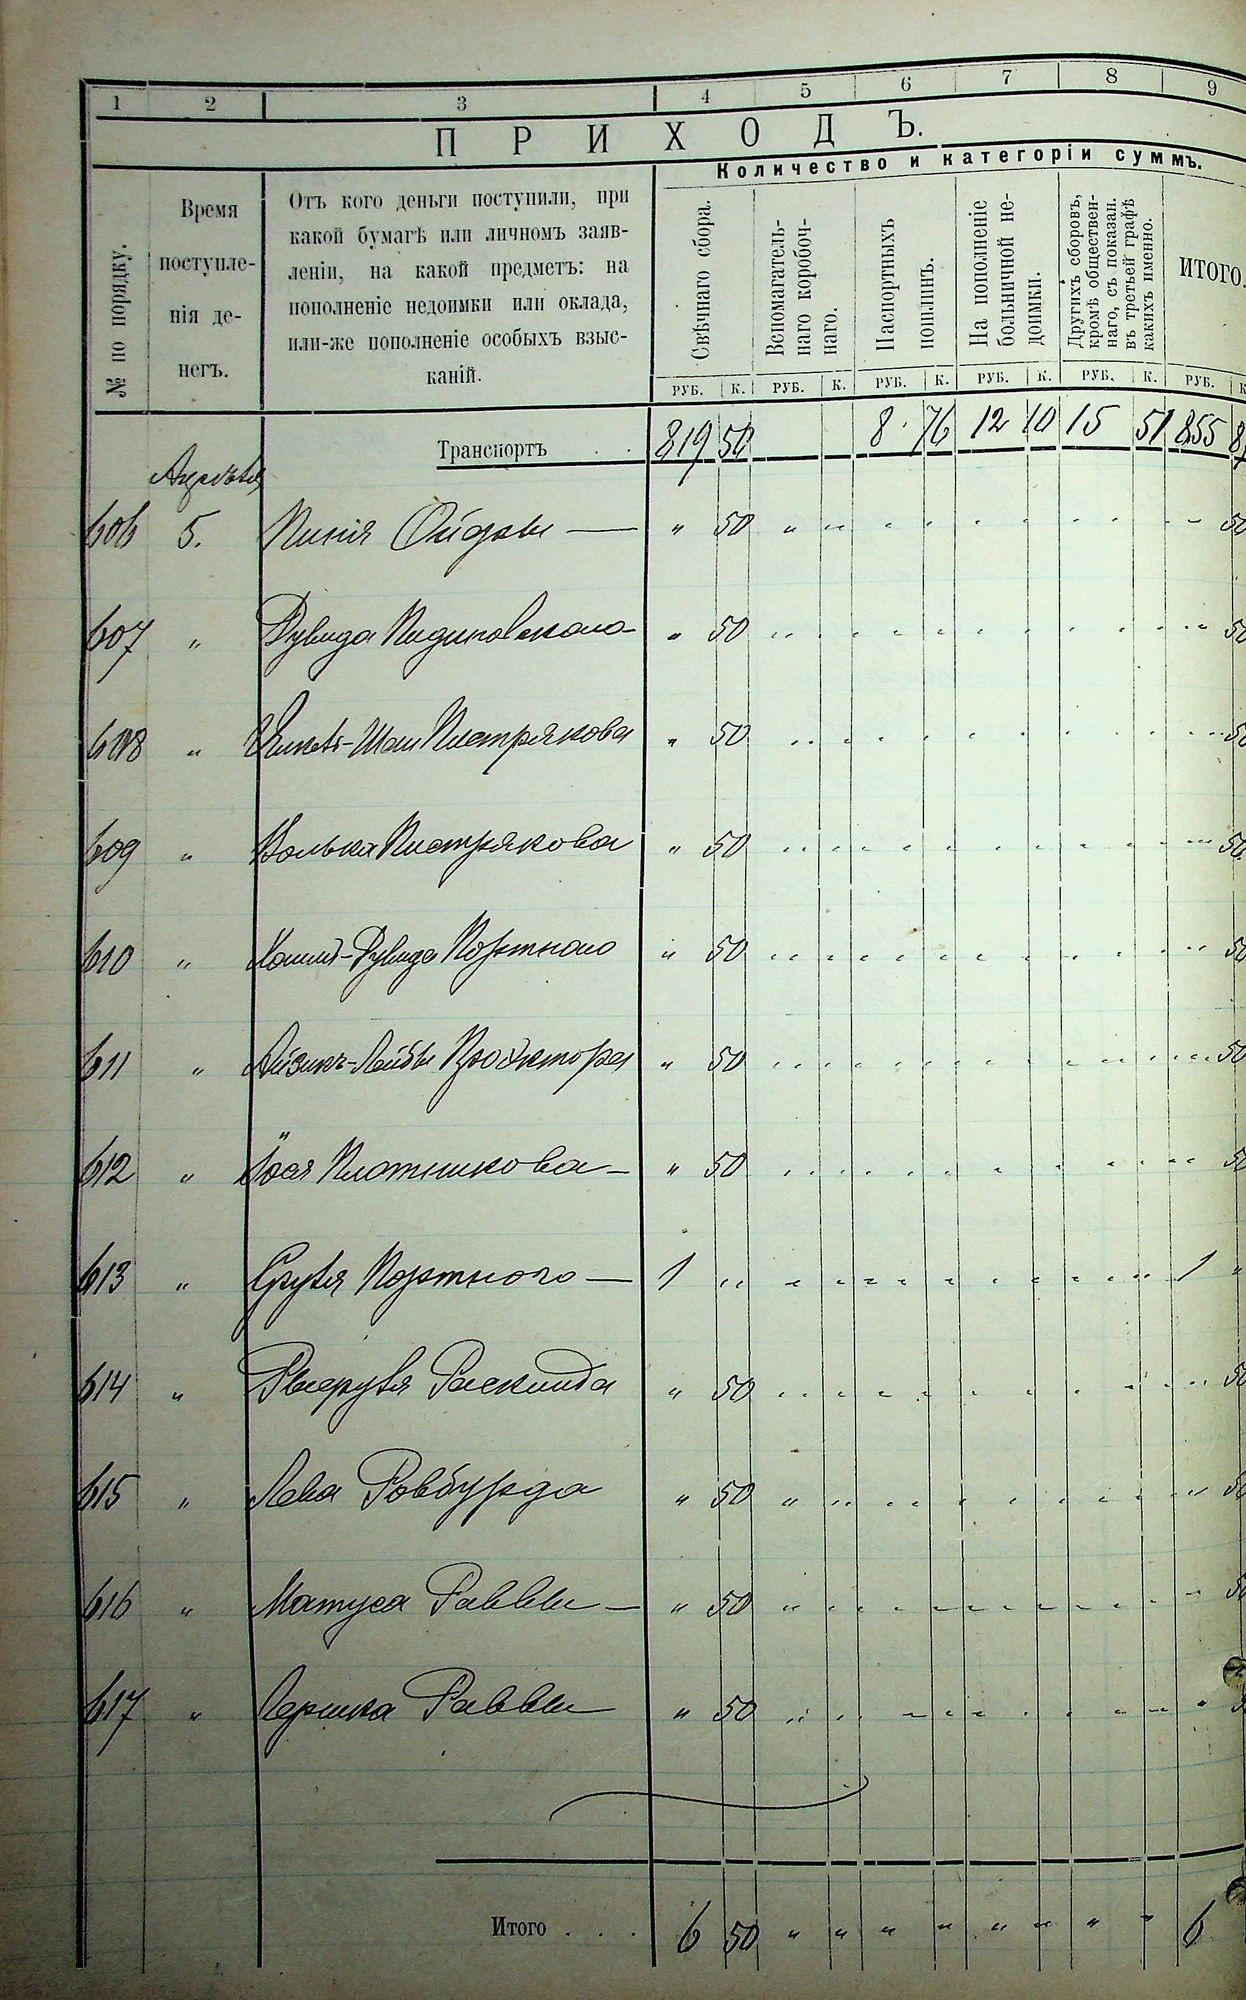 1 2 3 4 5 6 7 8 9
ПРИХОДЪ.
Количество и категоріи суммъ.
№ по порядку.
Время
поступле-
нія де-
негъ.
Отъ кого деньги поступили, при
какой бумагѣ или личномъ заяв-
леніи, на какой предметъ: на
пополненіе недоимки или оклада,
или-же пополненіе особыхъ взыс-
каній.
Свѣчнаго сбора.
Вспомагатель-
наго коробоч-
наго.
Паспортныхъ
пошлинъ.
На пополненіе
больничной не-
доимки.
Другихъ сборовъ,
кромѣ обществен-
наго, съ показан.
въ третьей графѣ
какихъ именно.
ИТОГО.
РУБ. К. РУБ. К. РУБ. К. РУБ. К. РУБ. К. РУБ. К
Транспортъ . . 819 50 8 76 12 10 15 51 855 8
Апрѣля
606 5. Пинія — " 50 " " " " " " " " " 50
607 " Дувида " 50 " " " " " " " " " 50
608 " Пистрякова " 50 " " " " " " " " " 50
609 " Волька Пистрякова " 50 " " " " " " " " " 50
610 " Хаимъ-Дувида Портного " 50 " " " " " " " " " 50
611 " Айзикъ-Лейбы " 50 " " " " " " " " " 50
612 " Плотникова — " 50 " " " " " " " " " 50
613 " Портного — 1 " " " " " " " " " 1 "
614 " Раскинда " 50 " " " " " " " " " 50
615 " " 50 " " " " " " " " " 50
616 " Матуса Раввы — " 50 " " " " " " " " " 50
617 " Раввы " 50 " " " " " " " " "
Итого . . . 6 50 " " " " " " " " 6